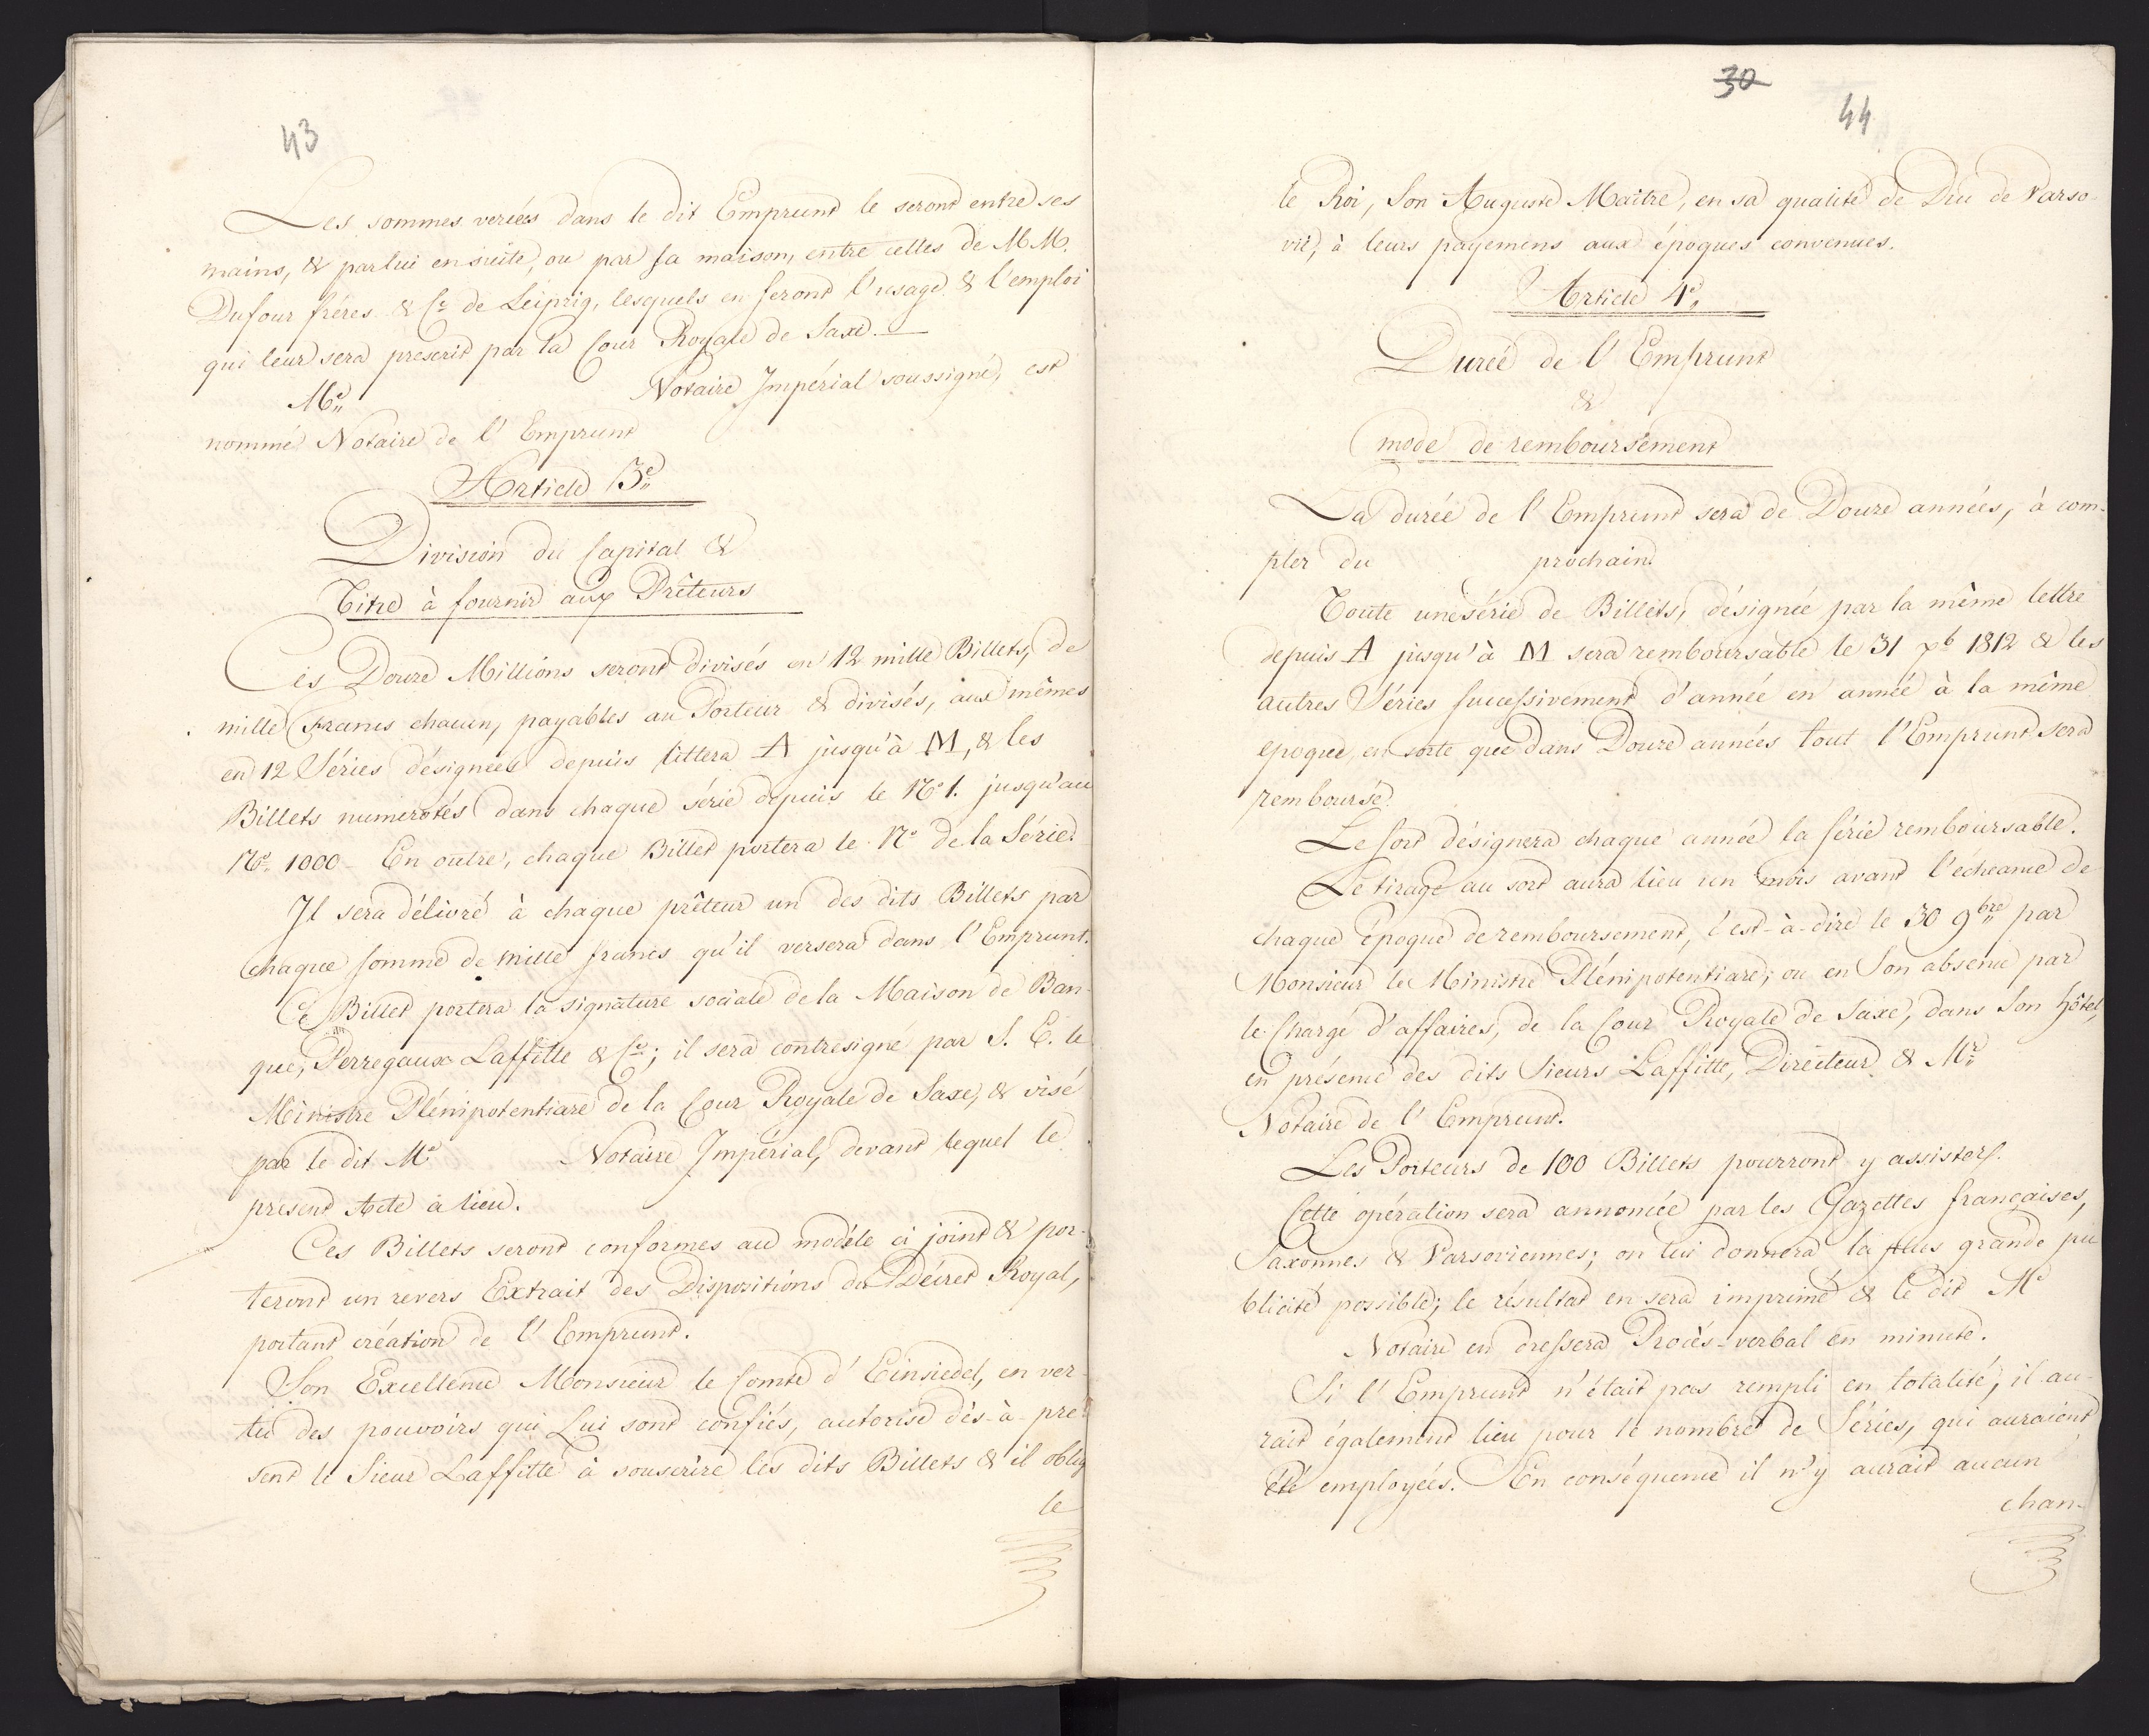 43
Les sommes versées dans le dit Emprunt le seront entre ses
mains, & par lui ensuite, ou par sa maison, entre celles de MM.
Dufour fréres & Cᵉ de Leipzig, lesquels en feront l'usage & l'emploi
qui leur sera prescrit par la Cour Royale de Saxe. —
Mᵉ Notaire Impérial soussigné, est
nommé Notaire de l'Emprunt
Article 3ᵉ
Division du Capital &
Titre à fournir aux Prêteurs
Ces Douze Millions seront divisés en 12 mille Billets, de
mille Francs chacun, payables au Porteur & divisés, aux mêmes
en 12 Séries désignées depuis littera A jusqu'à M, & les
Billets numerotés dans chaque série depuis le Nº 1. jusqu'au
Nº 1000 - En outre, chaque Billet portera le Nº de la Série.
Il sera délivré à chaque prêteur un des dits Billets par
chaque somme de mille francs qu'il versera dans l'Emprunt.
Ce Billet portera la signature sociale de la Maison de Ban-
que, Perregaux Laffitte & Cᵉ; il sera contresigné par S. E. le
Ministre Plénipotentiare de la Cour Royale de Saxe, & visé
par le dit Mᵉ Notaire Impérial, devant lequel le
présent Acte à lieu.
Ces Billets seront conformes au modéle ci joint & por-
teront un revers Extrait des Dispositions du Décret Royal,
portant création de l'Emprunt.
Son Excellence Monsieur le Comte d'Einsiedel, en ver-
tu des pouvoirs qui Lui sont confiés, autorise dès-à-pré-
sent le Sieur Laffitte à souscrire les dits Billets & il oblig
le
30
44
le Roi, Son Auguste Maître, en sa qualité de Duc de Varso-
vie, à leurs payemens aux époques convenues.
Article 4ᵉ
Durée de l'Emprunt
&
mode de remboursement
La durée de l'Emprunt sera de Douze années, à com-
pter du prochain.
Toute une série de Billets, désignée par la même lettre
depuis A jusqu'à M sera remboursable le 31 Xᵇ 1812 & les
autres Séries successivement d'année en année à la même
epoque, en sorte que dans Douze années tout l'Emprunt sera
remboursé.
Le sort désignera chaque année la série remboursable.
Le tirage au sort aura lieu un mois avant l'echeance de
chaque époque de remboursement, c'est-à-dire le 30 9ᵇʳᵉ par
Monsieur le Ministre Plénipotentiare; ou en Son absence par
le Chargé d'affaires, de la Cour Royale de Saxe, dans Son hôtel,
en présence des dits Sieurs Laffitte, Directeur & Mᵉ
Notaire de l'Emprunt.
Les Porteurs de 100 Billets pourront y assister.
Cette opération sera annoncée par les Gazettes françaises,
Saxonnes & Varsoviennes; on lui donnera la plus grande pu-
blicité possible; le résultat en sera imprimé & le dit Mᵉ
Notaire en dressera Procès-verbal en minute.
Si l'Emprunt n'était pas rempli en totalité, il au-
rait également lieu pour le nombre de Séries, qui auraient
été employées. En conséquence il n'y aurait aucun
chan-